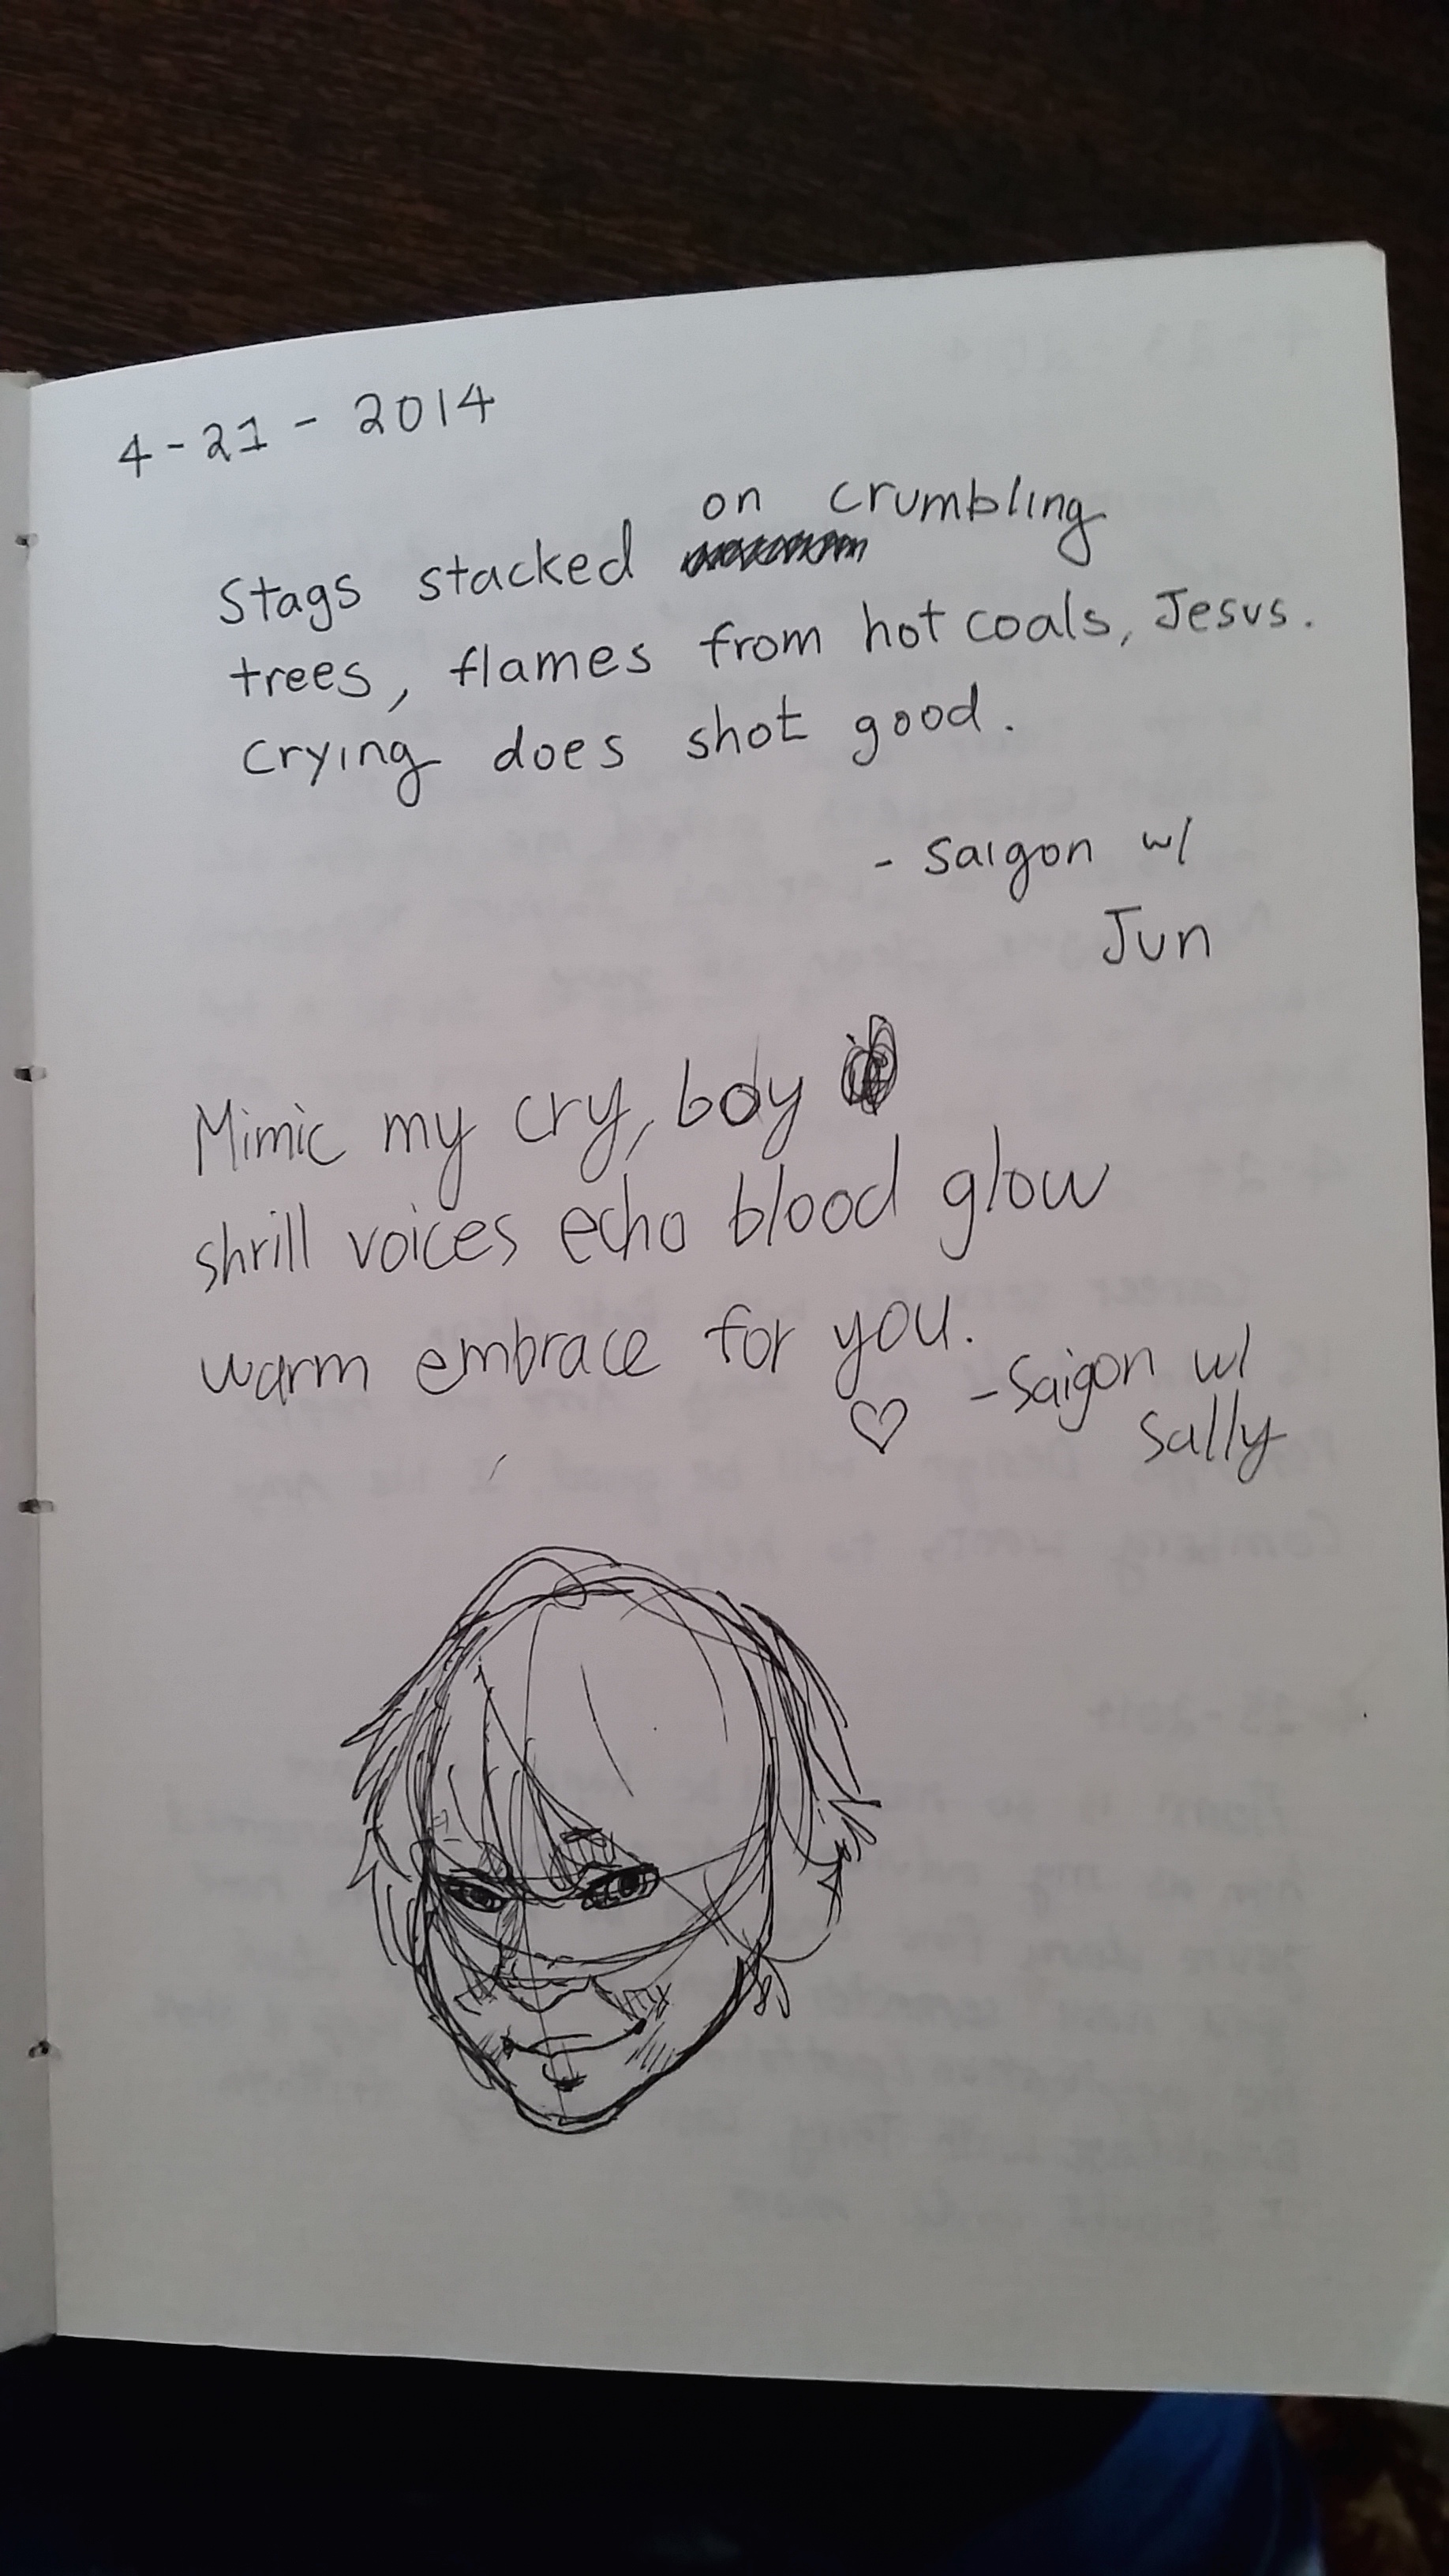 4-21-2014
on crumbling
Stags stacked
trees, flames from hot coals, Jesus.
Crying does shot good.
- Saigon w/
Jun
Mimic my cry, boy
shrill voices echo blood glow
warm embrace for you.
♡ - Saigon w/
Sally